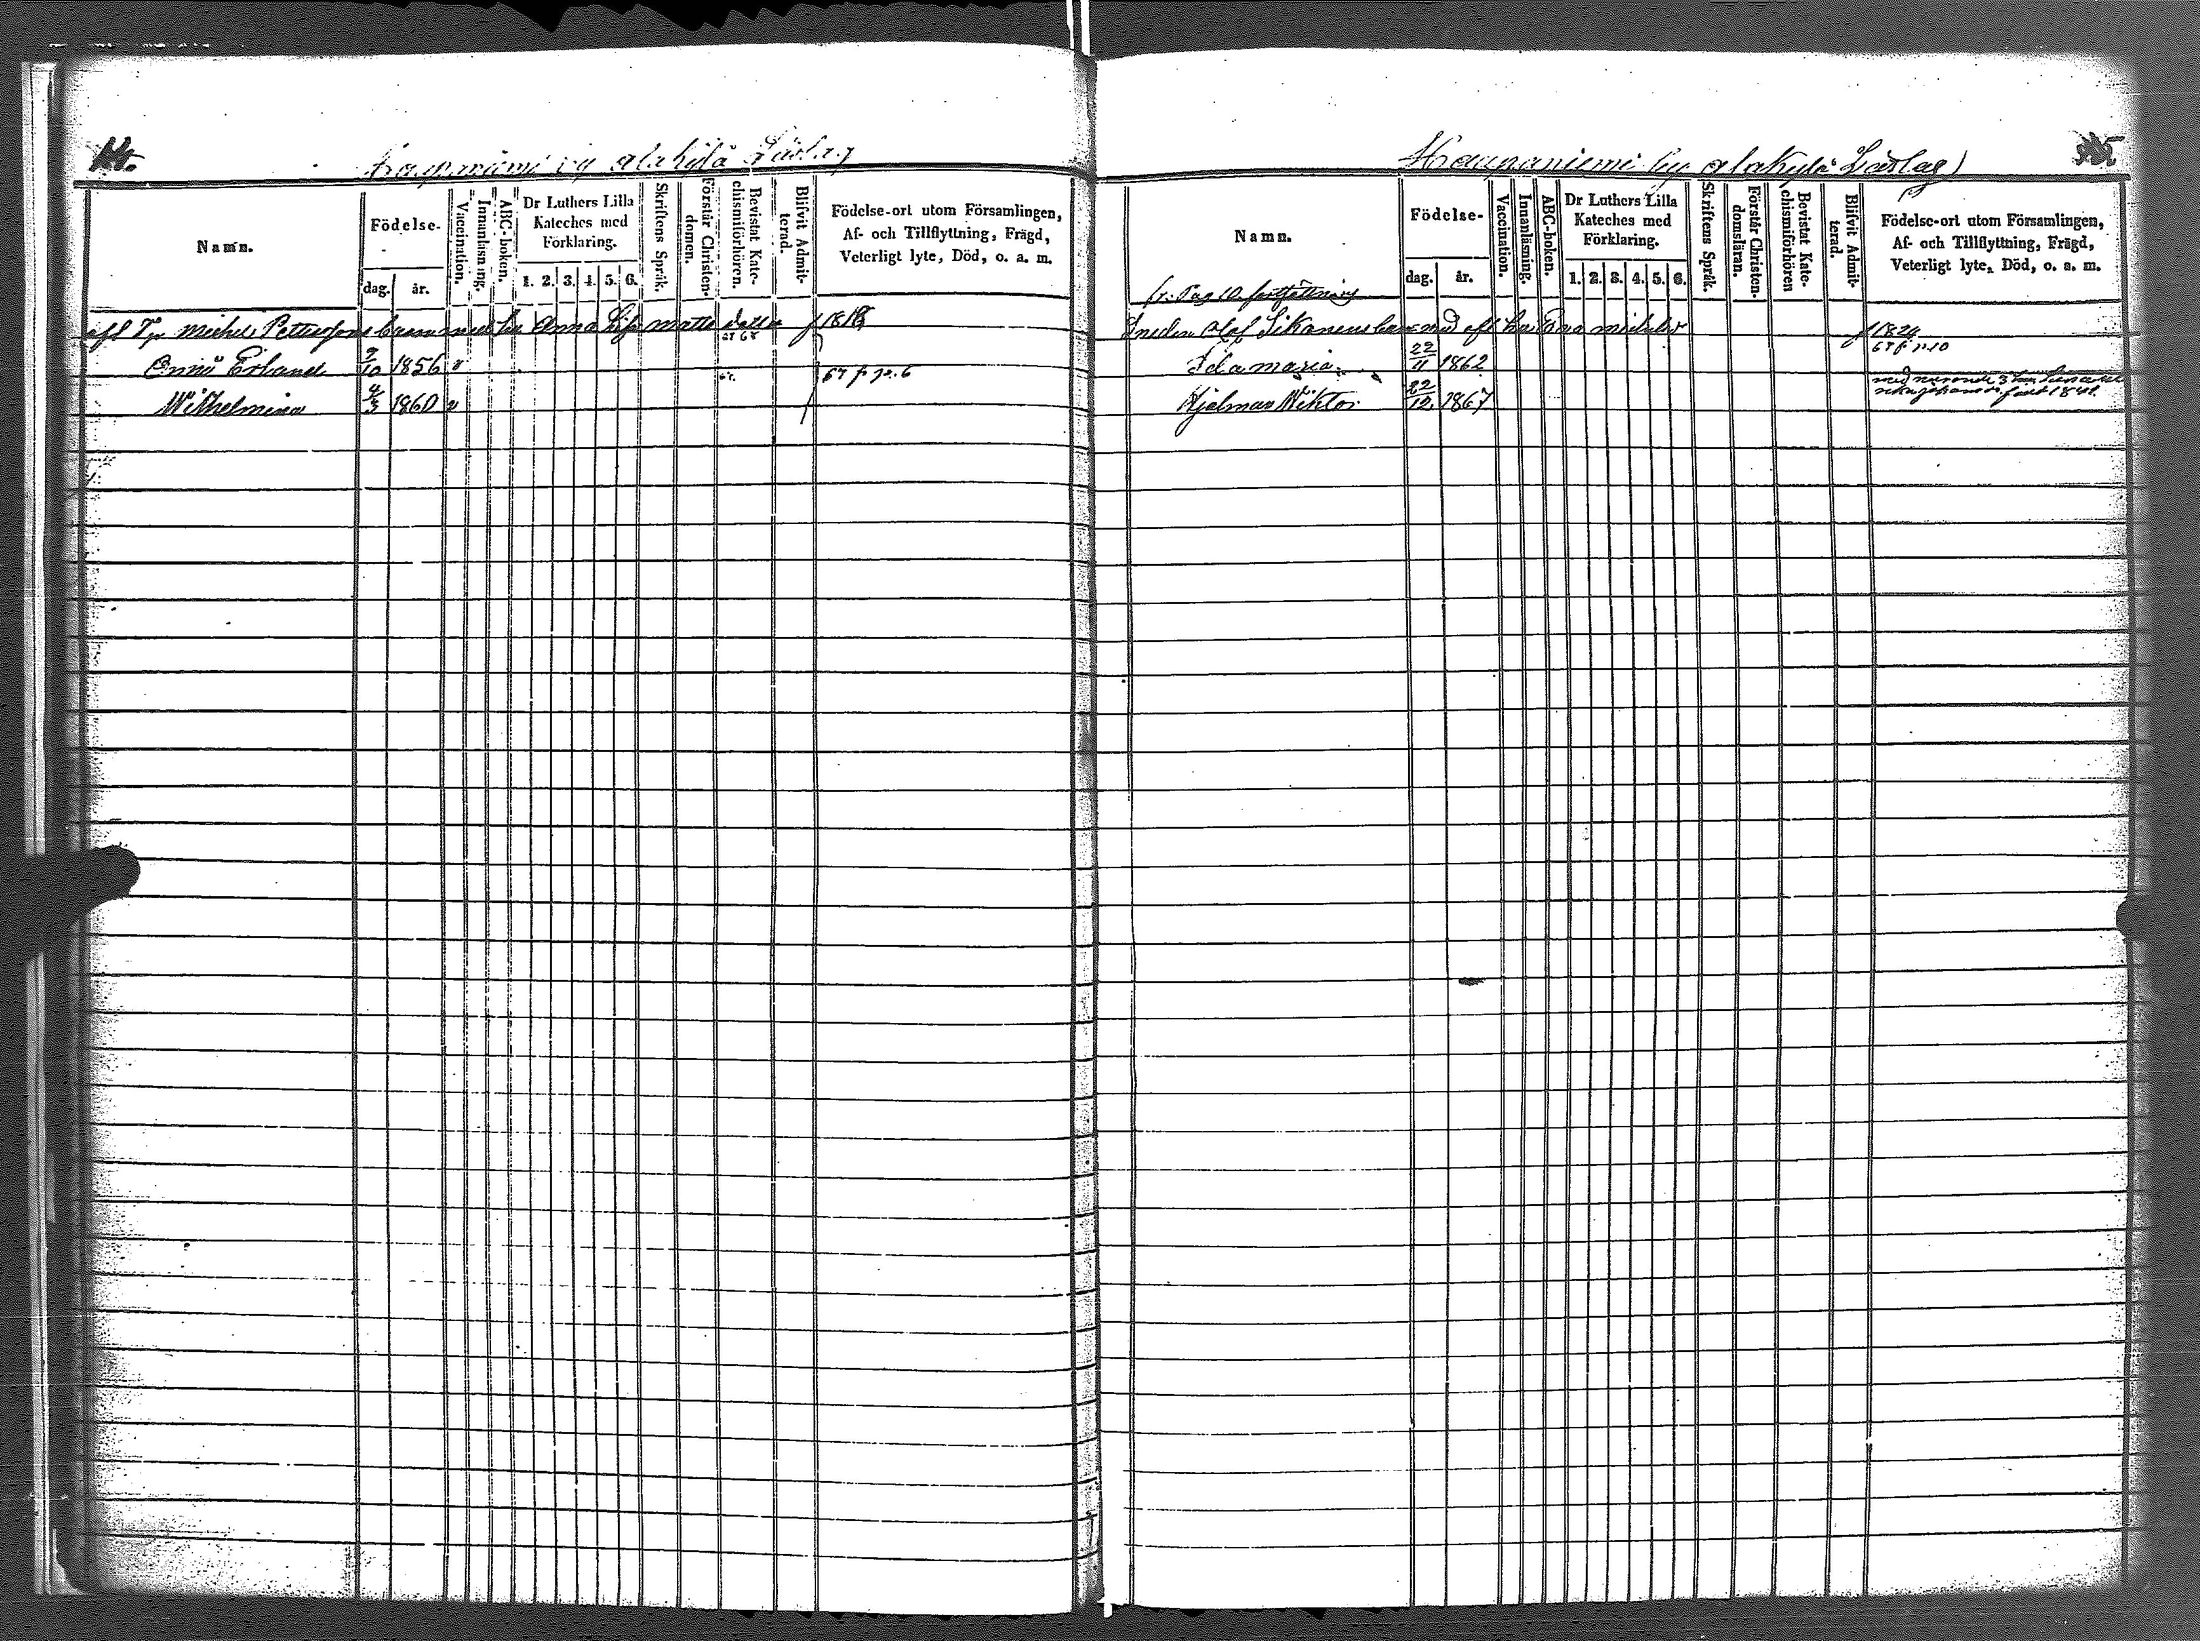 14.
by alakylä Läslag
Namn.
Födelse-
dag. år.
Vaccination.
Innanläsning.
ABC-boken.
Dr Luthers Lilla
Kateches med
Förklaring.
1. 2. 3. 4. 5. 6.
Skriftens Språk.
Förstår Christen-
domen.
Bevistat Kate-
chismiförhören.
Blifvit Admit-
terad.
Födelse-ort utom Församlingen,
Af- och Tillflyttning, Frägd,
Veterligt lyte, Död, o. a. m.
afl Tp Michel Pettersons barn med hu Anna Lisa Matts dotter f 1818
67 68
Erland 2/10 1856 v 67 f p. 6
Wilhelmina 4/3 1860 v
Haapaniemi by alakylä Läslag
Namn.
Födelse-
dag. år.
Vaccination.
Innanläsning.
ABC-boken.
Dr Luthers Lilla
Kateches med
Förklaring.
1. 2. 3. 4. 5. 6.
Skriftens Språk.
Förstår Christen-
domsläran.
Bevistat Kate-
chismiförhören
Blifvit Admit-
terad.
Födelse-ort utom Församlingen,
Af- och Tillflyttning, Frägd,
Veterligt lyte, Död, o. a. m.
fr. Pag 10. fortsättning
Olof Sikanens barn med afl hu Eva f 1824
67 f p. 10
Ida Maria 22/11 1862
Hjelmar Wiktor 22/12. 1867